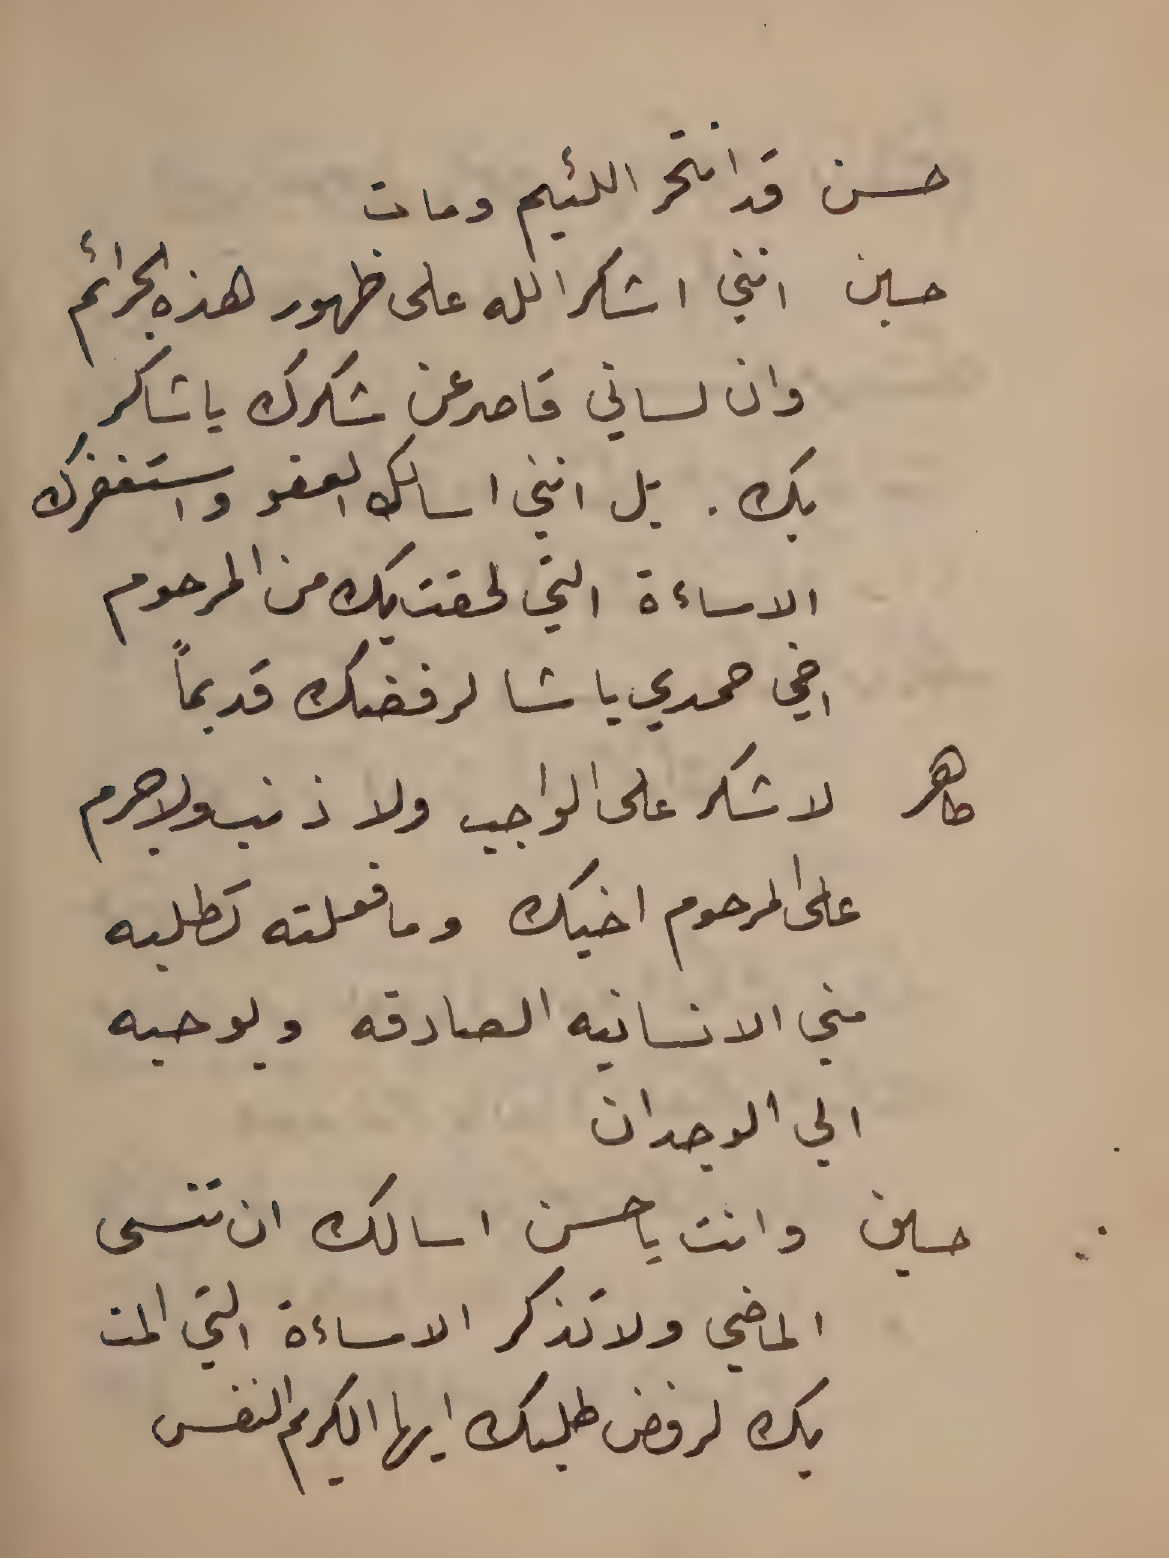 حسن قد انتحر اللئيم ومات
حسين انني اشكر الله على ظهور هذه الجرائم
وان لساني قاصر عن شكرك يا شاكر
بك . بل انني اسالك العفو واستغفرك
الاساءة التي لحقت بك من المرحوم
اخي حمدي باشا لرفضك قديماً
ماهر لا شكر على الواجب ولا ذنب ولا جرم
على المرحوم اخيك وما فعلته تطلبه
مني الانسانيه الصادقه ويوحيه
الي الوجدان
حسين وانت يا حسن اسالك ان تنسى
الماضي ولا تذكر الاساءة التي المت
بك لرفض طلبك ايها الكريم النفس